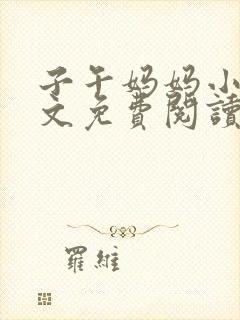 子午妈妈小
文免費閱讀
羅維